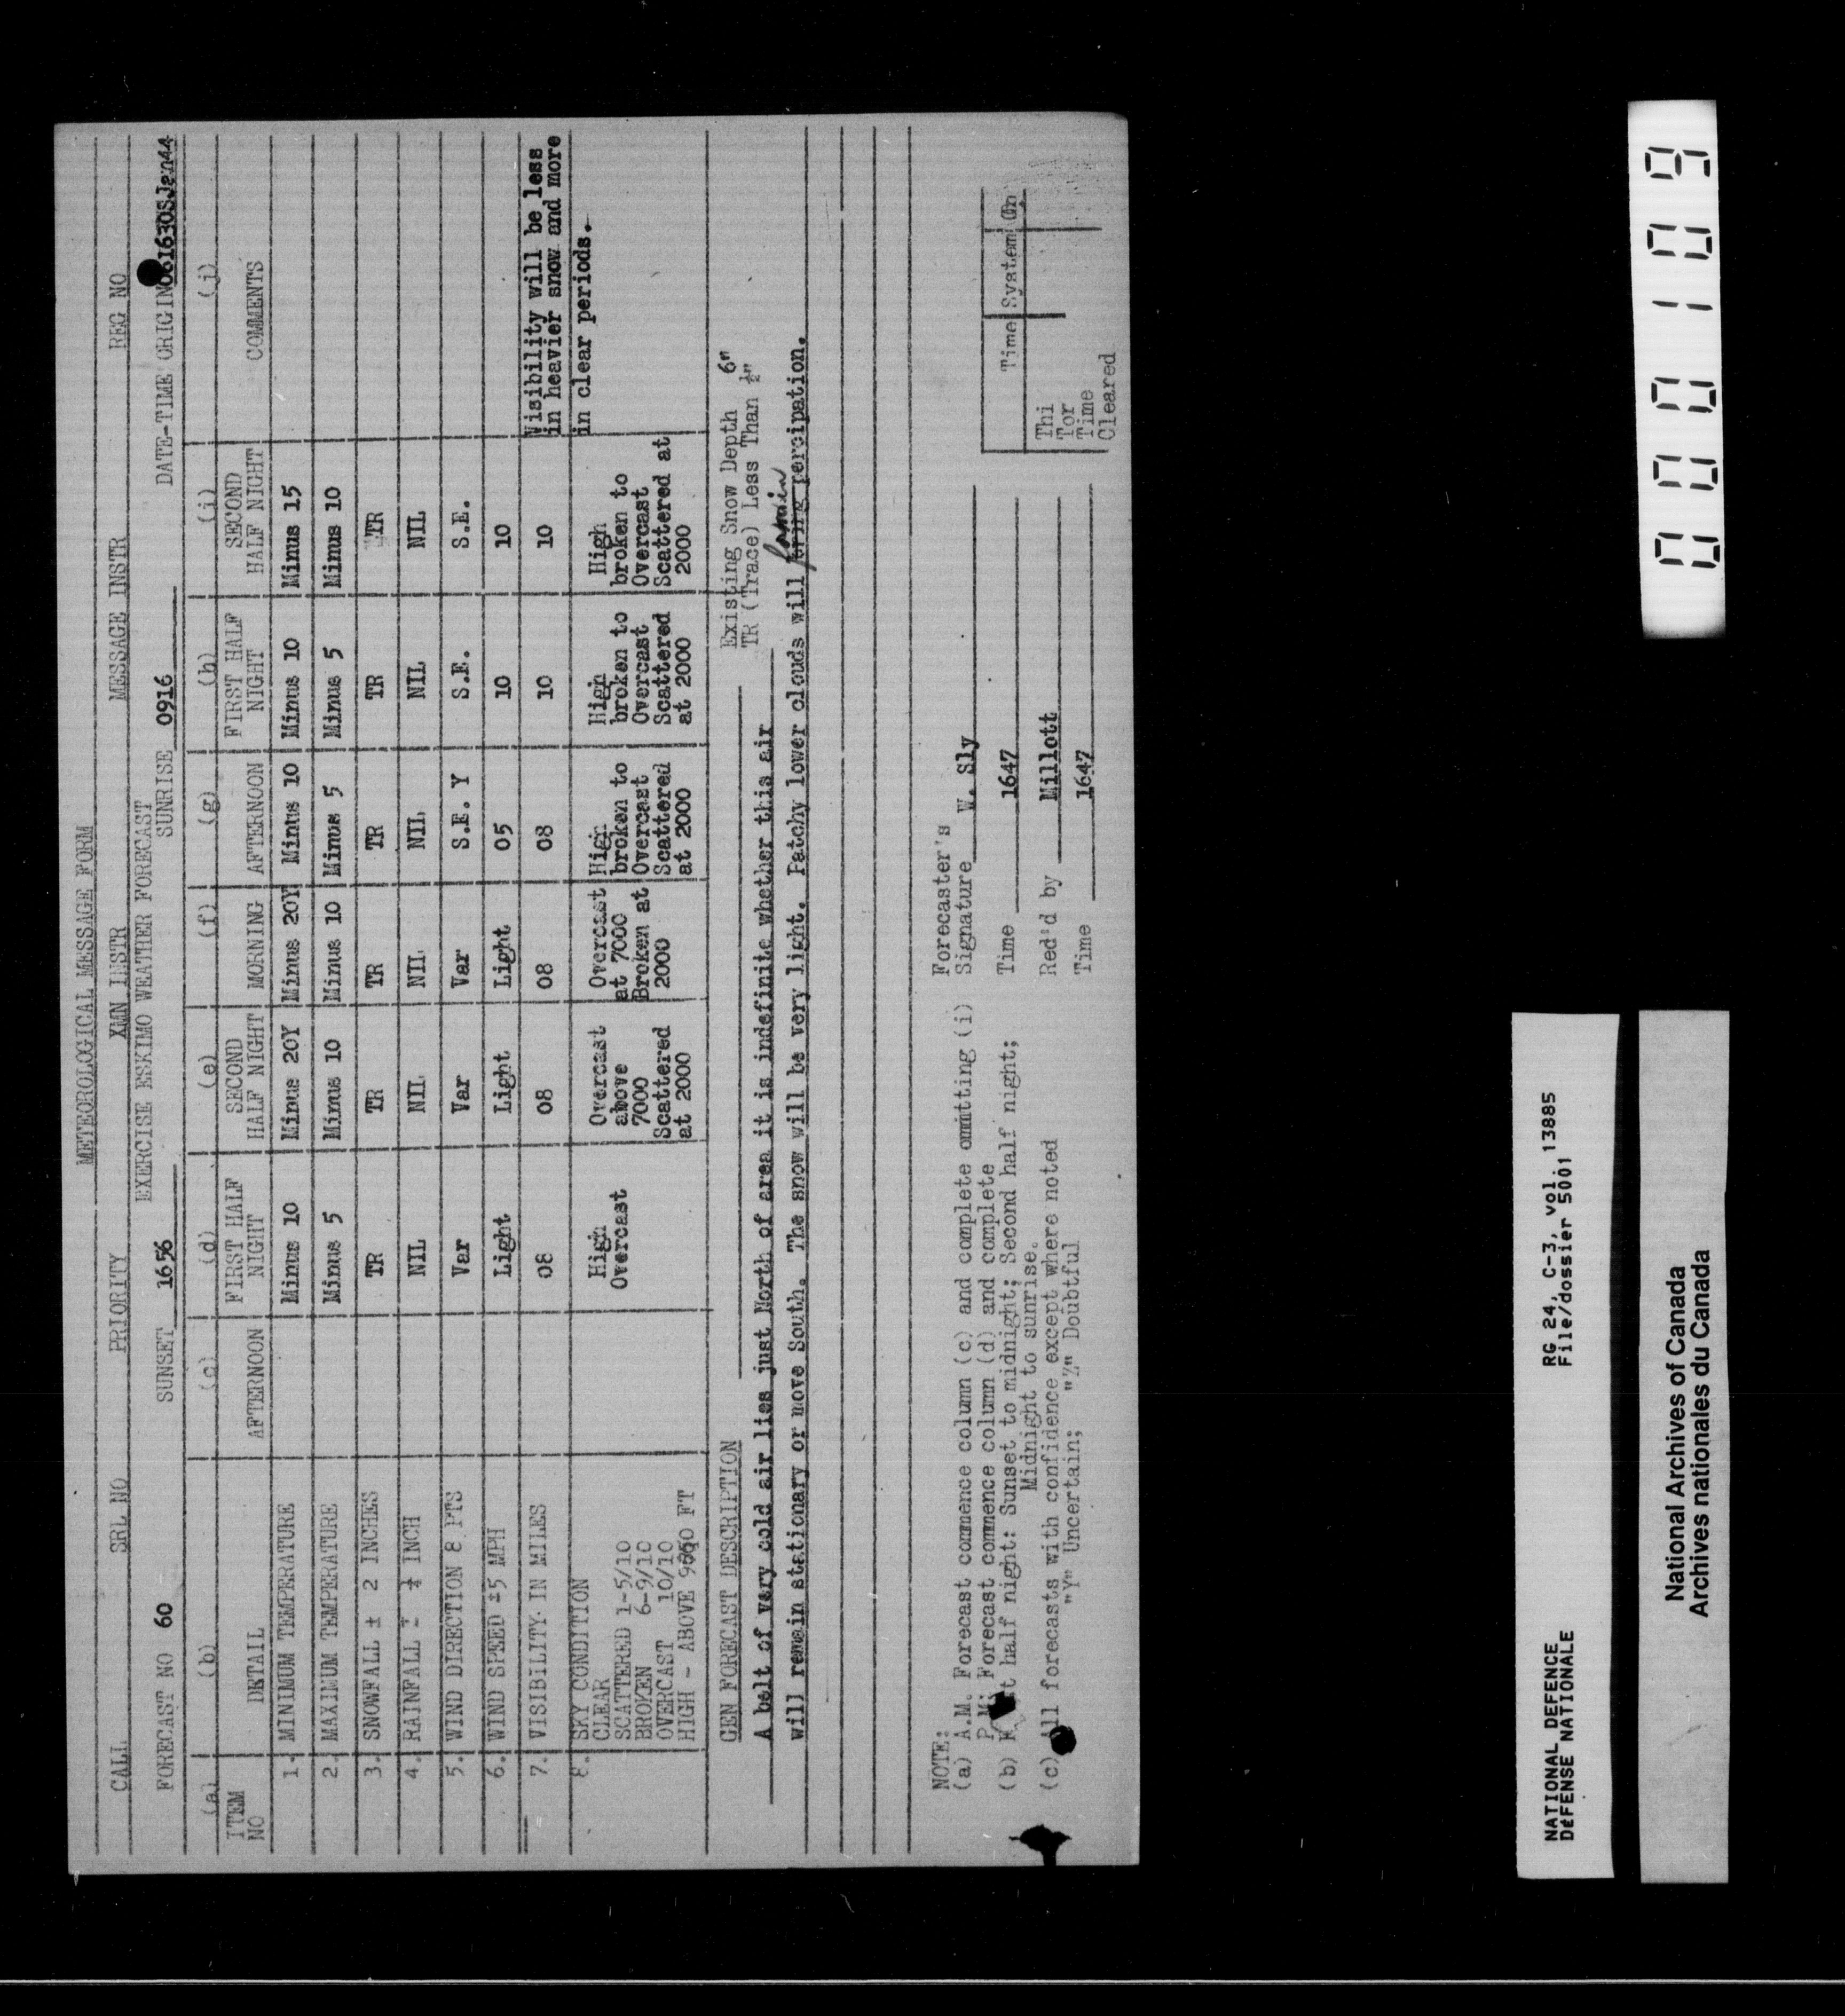 METEOROLOGICAL MESSAGE FORM
CALL SRL NO PRIORITY XMN INSTR MESSAGE INSTR REG NO
EXERCISE ESKIMO WEATHER FORECAST
FORECAST NO 60 SUNSET 1656 SUNRISE 0916 DATE-TIME ORIGIN 061630SJan44
(a) (b) (c) (d) (e) (f) (g) (h) (i) (j)
ITEM FIRST HALF SECOND FIRST HALF SECOND
NO DETAIL AFTERNOON NIGHT HALF NIGHT MORNING AFTERNOON NIGHT HALF NIGHT COMMENTS
1. MINIMUM TEMPERATURE Minus 10 Minus 20Y Minus 20Y Minus 10 Minus 10 Minus 15
2. MAXIMUM TEMPERATURE Minus 5 Minus 10 Minus 10 Minus 5 Minus 5 Minus 10
3. SNOWFALL ± 2 INCHES TR TR TR TR TR TR
4. RAINFALL ± ¼ INCH NIL NIL NIL NIL NIL NIL
5. WIND DIRECTION 8 PTS Var Var Var S.E. Y S.E. S.E.
6. WIND SPEED ±5 MPH Light Light Light 05 10 10
7. VISIBILITY IN MILES 08 08 08 08 10 10 Visibility will be less
in heavier snow and more
in clear periods.
8. SKY CONDITION High Overcast Overcast High High High
CLEAR Overcast above at 7000 broken to broken to broken to
SCATTERED 1-5/10 7000 Broken at Overcast Overcast Overcast
BROKEN 6-9/10 Scattered 2000 Scattered Scattered Scattered at
OVERCAST 10/10 at 2000 at 2000 at 2000 2000
HIGH - ABOVE FT
GEN FORECAST DESCRIPTION Existing Snow Depth 6"
TR (Trace) Less Than ½"
A belt of very cold air lies just North of area it is indefinite whether this air
will remain stationary or move South. The snow will be very light. Patchy lower clouds will bring percipation.
NOTE:
(a) A.M. Forecast commence column (c) and complete omitting (i)
P.M. Forecast commence column (d) and complete
(b) half night: Sunset to midnight; Second half night;
Midnight to sunrise.
(c) All forecasts with confidence except where noted
"Y" Uncertain; "Z" Doubtful
Forecaster's
Signature W. Sly
Time 1647
Rec'd by Millott
Time 1647
Time System Op
Thi
Tor
Time
Cleared
NATIONAL DEFENCE
DÉFENSE NATIONALE
RG 24, C-3, vol. 13885
File/dossier 5001
National Archives of Canada
Archives nationales du Canada
000109